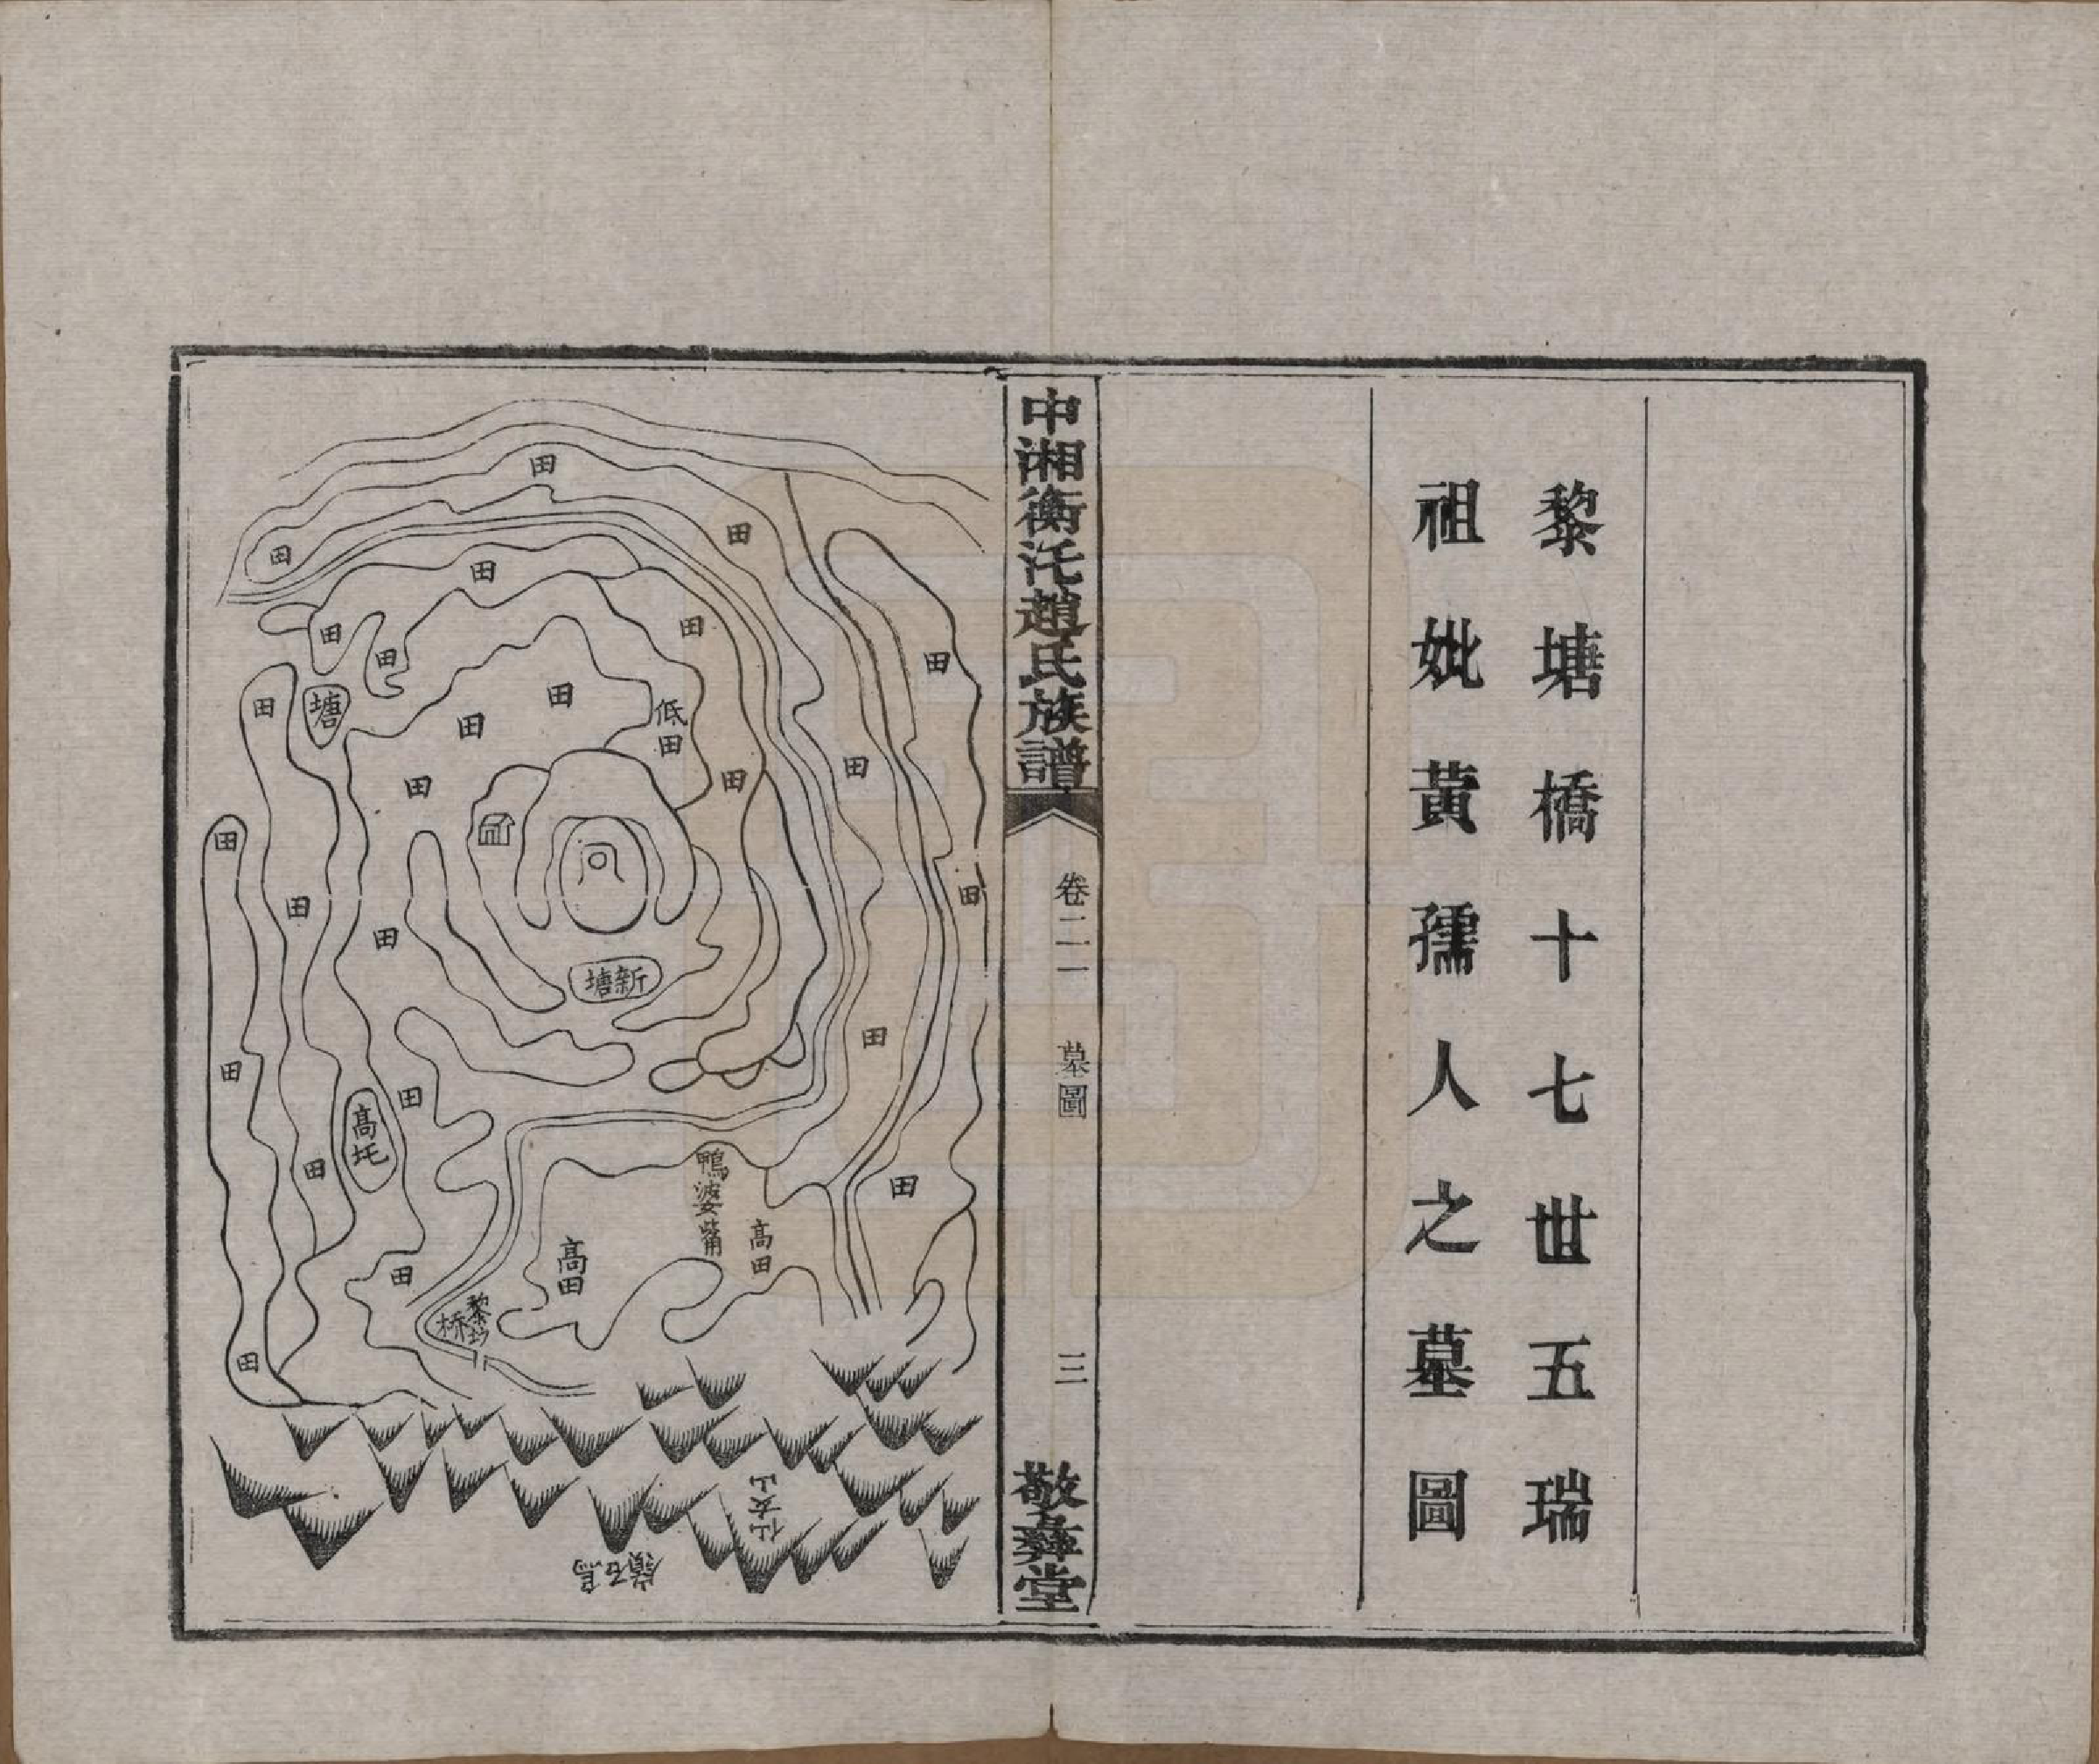 黎塘橋十七世五瑞
祖妣黃孺人之墓圖
中湘衡汑趙氏族譜
卷二一
墓圖
三
敬彝堂
田
田
田
田
田
田
田
田
田
塘
田
田
低田
田
田
田
田
田
田
田
新塘
田
田
田
高圫
田
田
田
鴨婆嘴
高田
高田
黎塘橋
田
仙女山
烏石嶺